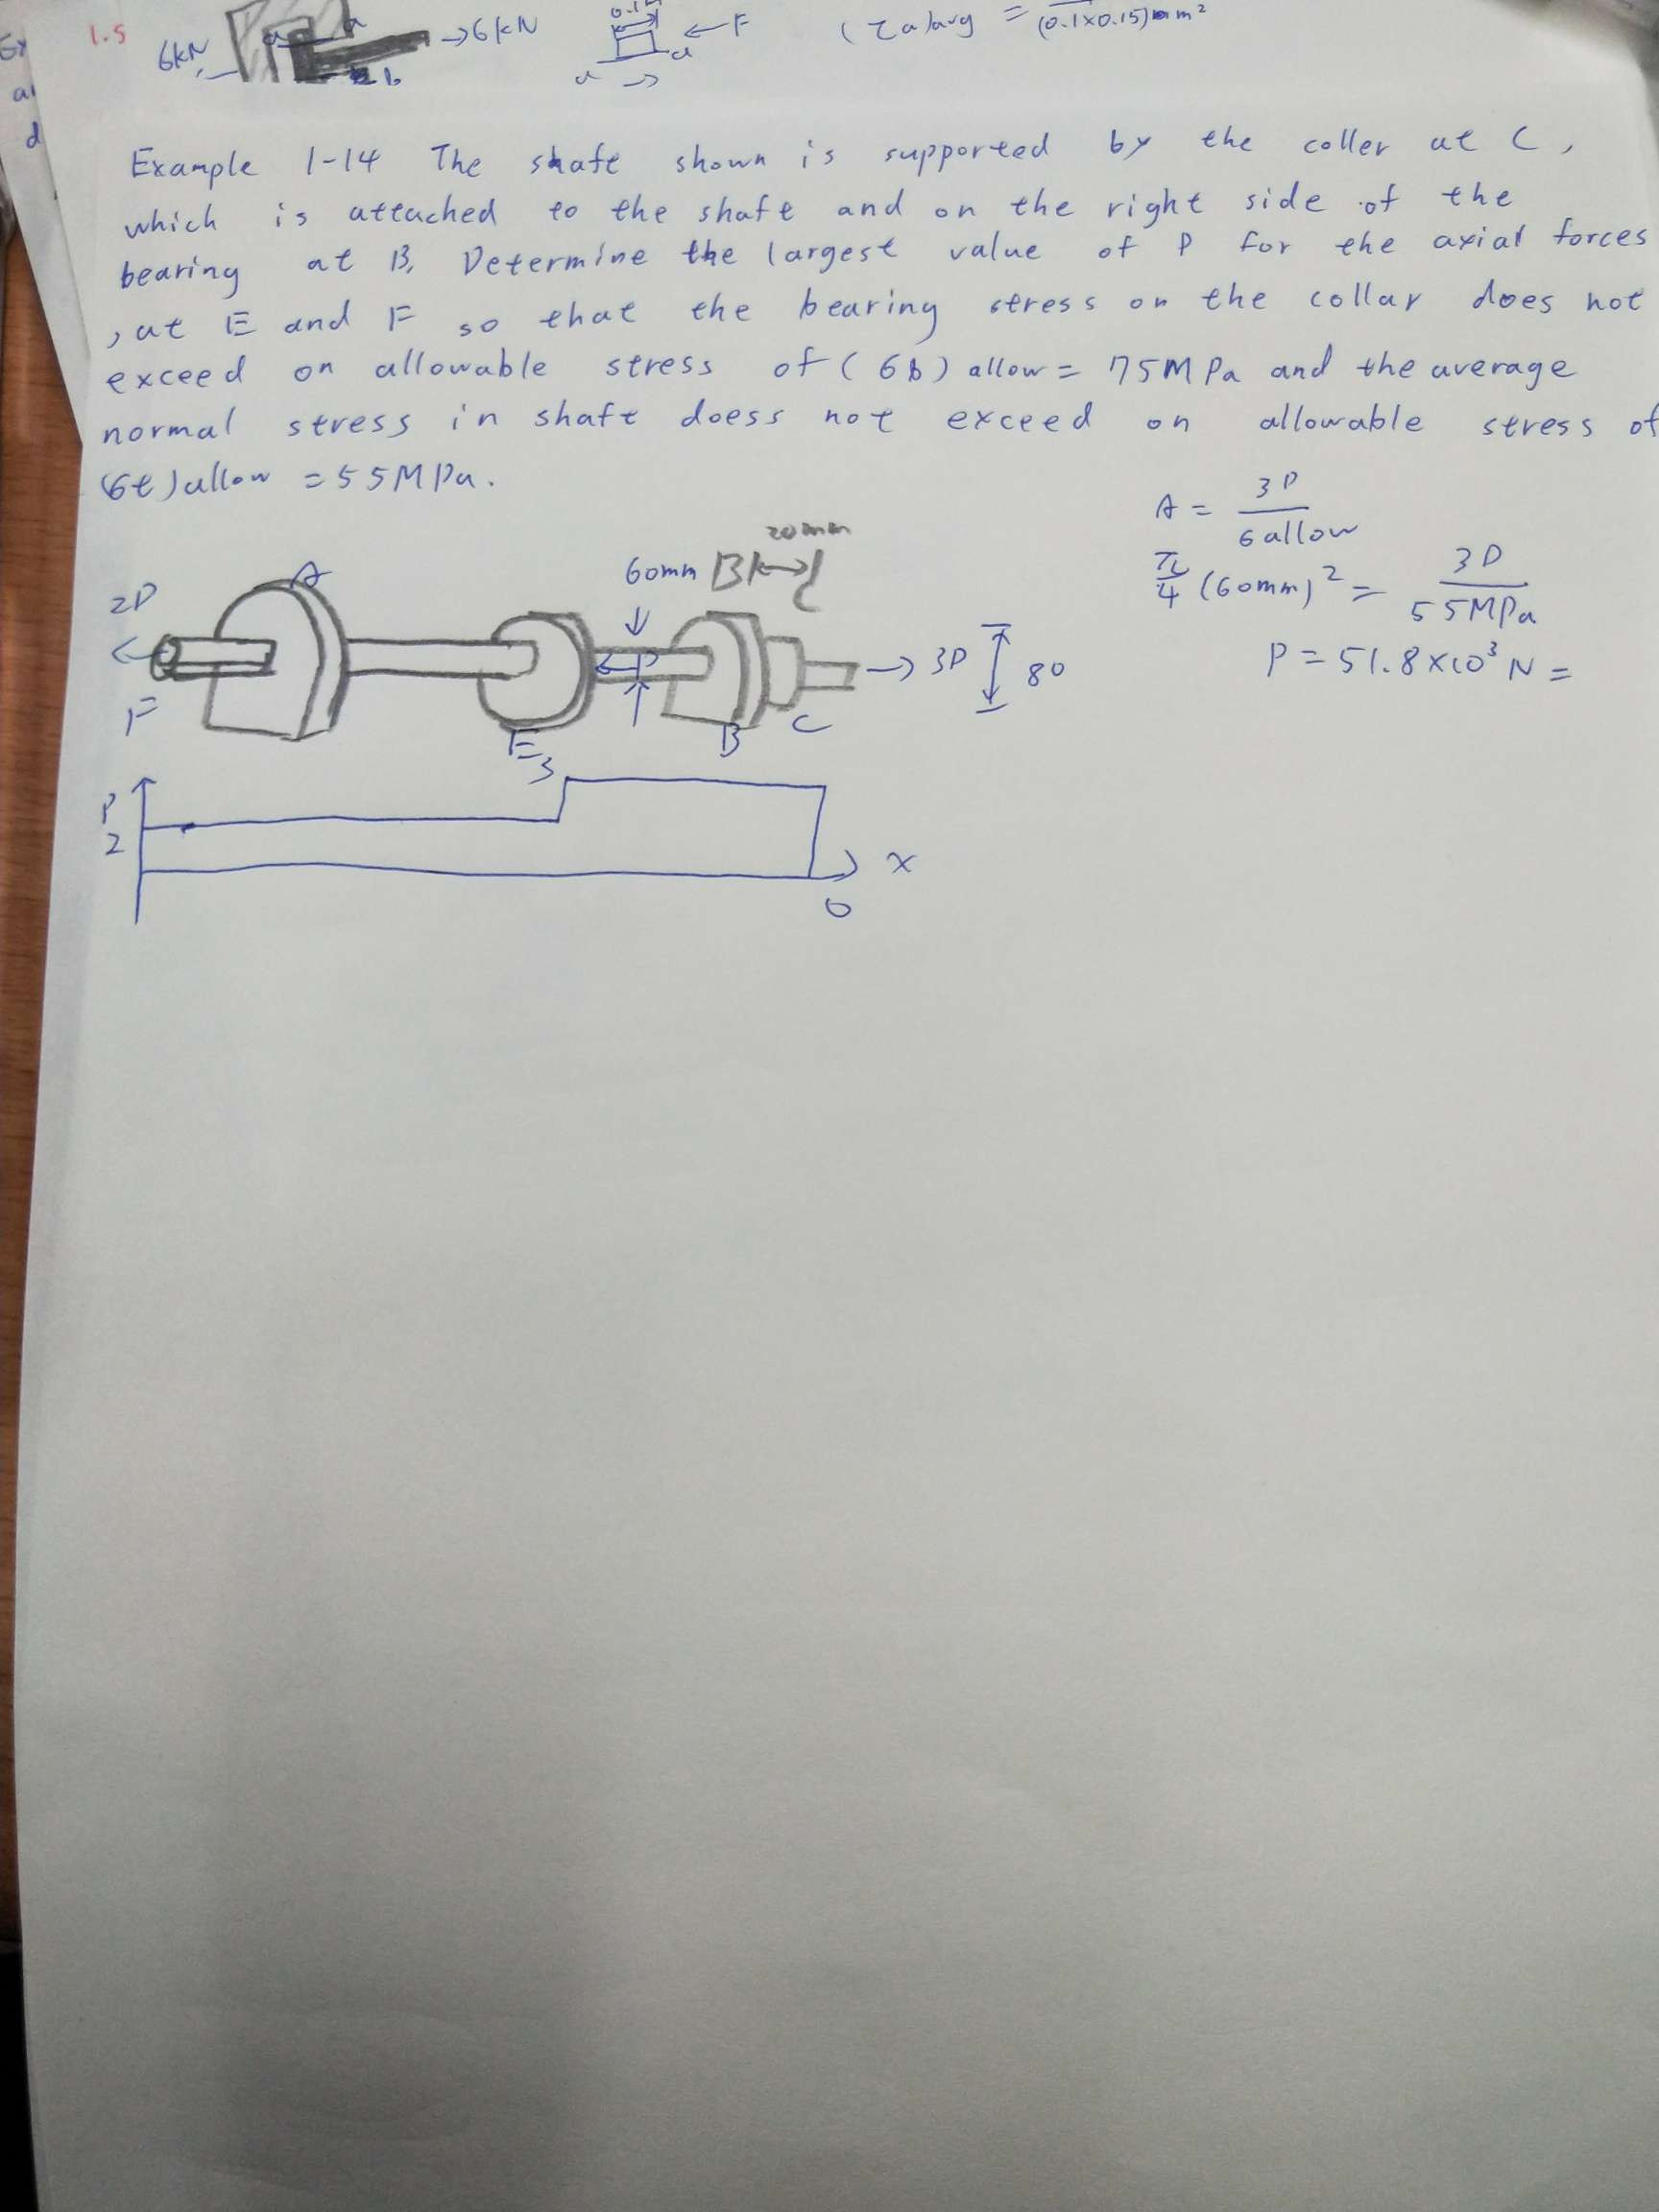 1.5 6kN a a →6kN b 0.1 ←F a a (τa)avg = (0.1×0.15)mm²
d
Example 1-14 The shaft shown is supported by the coller at C,
which is attached to the shaft and on the right side of the
bearing at B, Determine the largest value of P for the axial forces
, at E and F so that the bearing stress on the collar does not
exceed on allowable stress of (6b) allow = 75MPa and the average
normal stress in shaft doess not exceed on allowable stress of
(6t)allow = 55MPa.
A = 3P / 6allow
π/4 (60mm)² = 3P / 55MPa
P = 51.8×10³ N =
20mm
60mm B C
2P A
F E P B C 3P 80
P 3
2
x
0